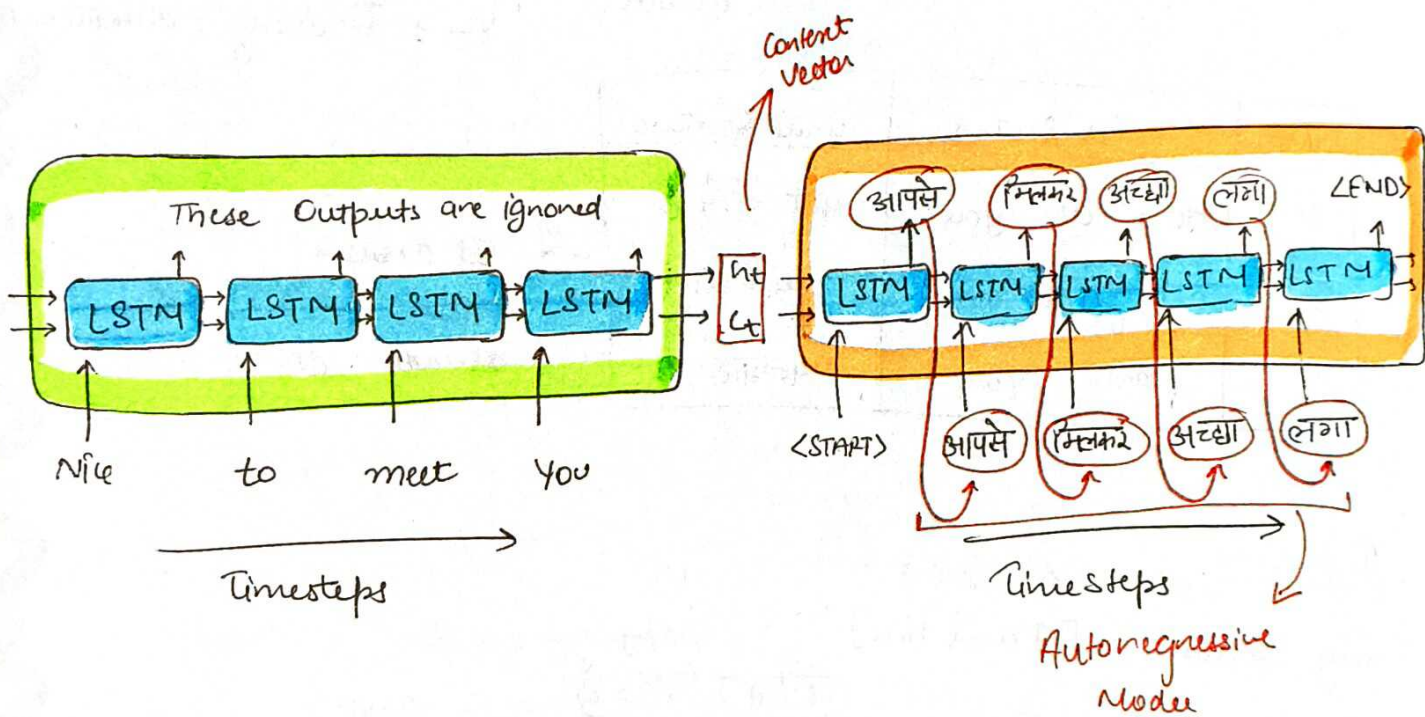 Context
Vector
These Outputs are ignored
LSTM LSTM LSTM LSTM
ht
Ct
Nice to meet you
Timesteps
आपसे मिलकर अच्छा लगा <END>
LSTM LSTM LSTM LSTM LSTM
<START> आपसे मिलकर अच्छा लगा
Timesteps
Autoregressive
Model